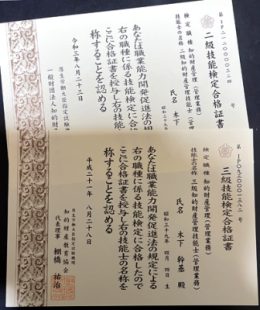 二級技能検定合格証書
検定職種 知的財産管理(管理業務)
技能士の名称 二級知的財産管理技能士(管理業務)
氏名 木下
あなたは職業能力開発促進法の規
右の職種に係る技能検定に合格
ここに合格証書を授与し右の技能
称することを認める
令和三年八月二十三日
厚生労働大臣指定試験機関
一般財団法人知的財
三級技能検定合格証書
検定職種 知的財産管理(管理業務)
技能士の名称 三級知的財産管理技能士(管理業務)
氏名 木下 幹基 殿
あなたは職業能力開発促進法の規定による
右の職種に係る技能検定に合格したので
ここに合格証書を授与し右の技能士の名称を
称することを認める
平成二十一年 八月二十八日
厚生労働大臣指定試験機関
知的財産教育協会
代表理事 棚橋 祐治